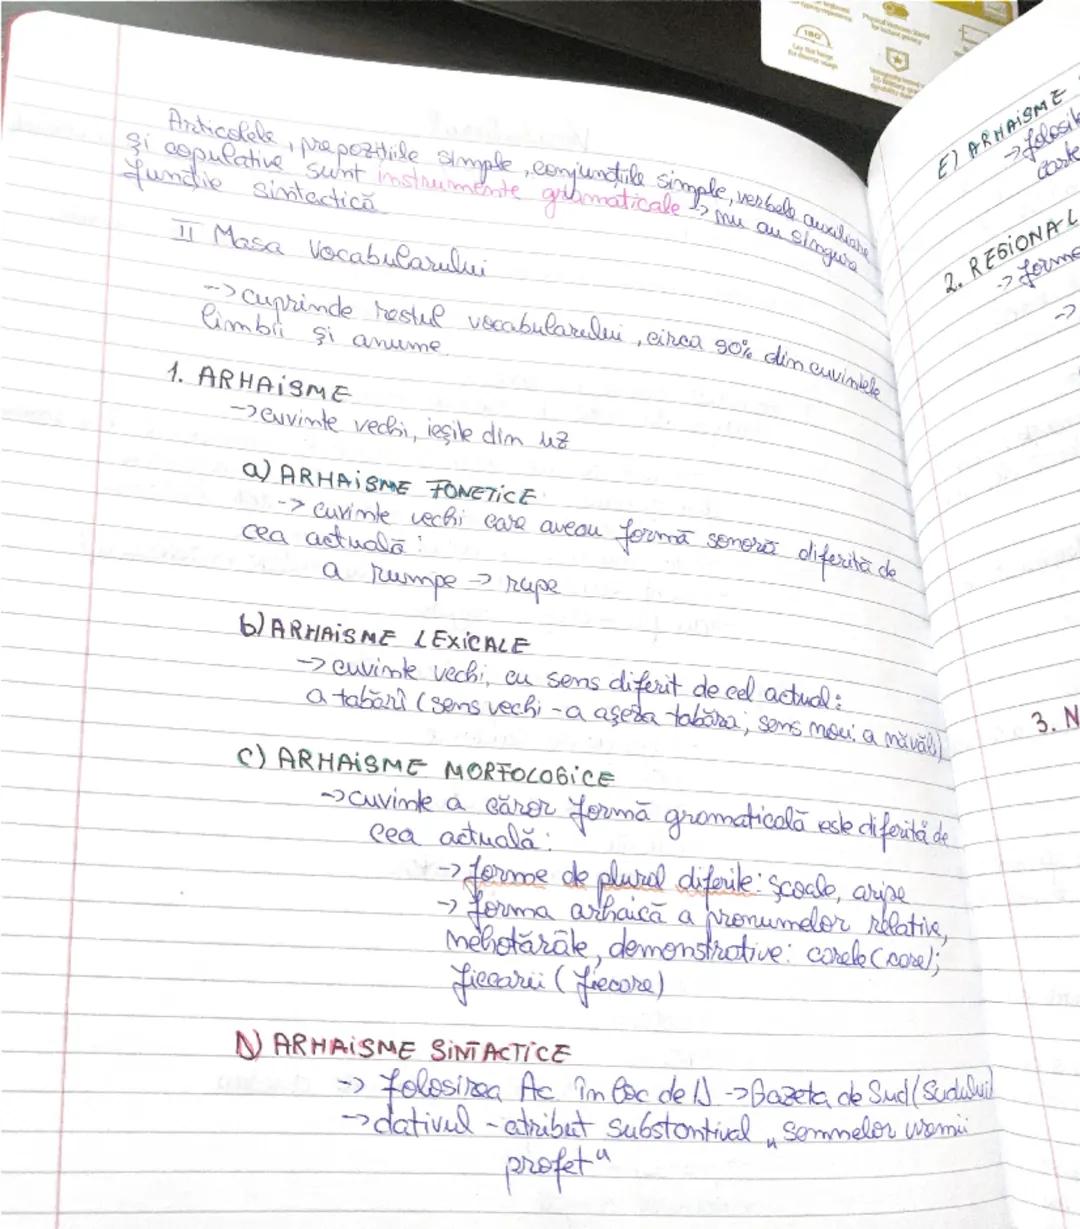 Articolele, prepozițiile simple, conjuncțiile simple, verbele auxiliare
și copulative sunt instrumente gramaticale -> nu au singure
funcție sintactică
II Masa Vocabularului
-> cuprinde restul vocabularului, circa 90% din cuvintele
limbii și anume
1. ARHAISME
-> cuvinte vechi, ieșite din uz
a) ARHAISME FONETICE
-> cuvinte vechi care aveau formă sonoră diferită de
cea actuală:
a rumpe -> rupe
b) ARHAISME LEXICALE
-> cuvinte vechi, cu sens diferit de cel actual:
a tăbărî (sens vechi - a așeza tabăra; sens nou: a năvăli)
c) ARHAISME MORFOLOGICE
-> cuvinte a căror formă gramaticală este diferită de
cea actuală:
-> forme de plural diferite: școale, aripe
-> forma arhaică a pronumelor relative,
nehotărâte, demonstrative: carele (care);
fiecarii (fiecare)
D) ARHAISME SINTACTICE
-> folosirea Ac în loc de D -> Gazeta de Sud (Sudului)
-> dativul - atribut substantival „semnelor vremii
profet"
E) ARHAISME
-> folosite
carte
2. REGIONAL
-> forme
->
3. N
180°